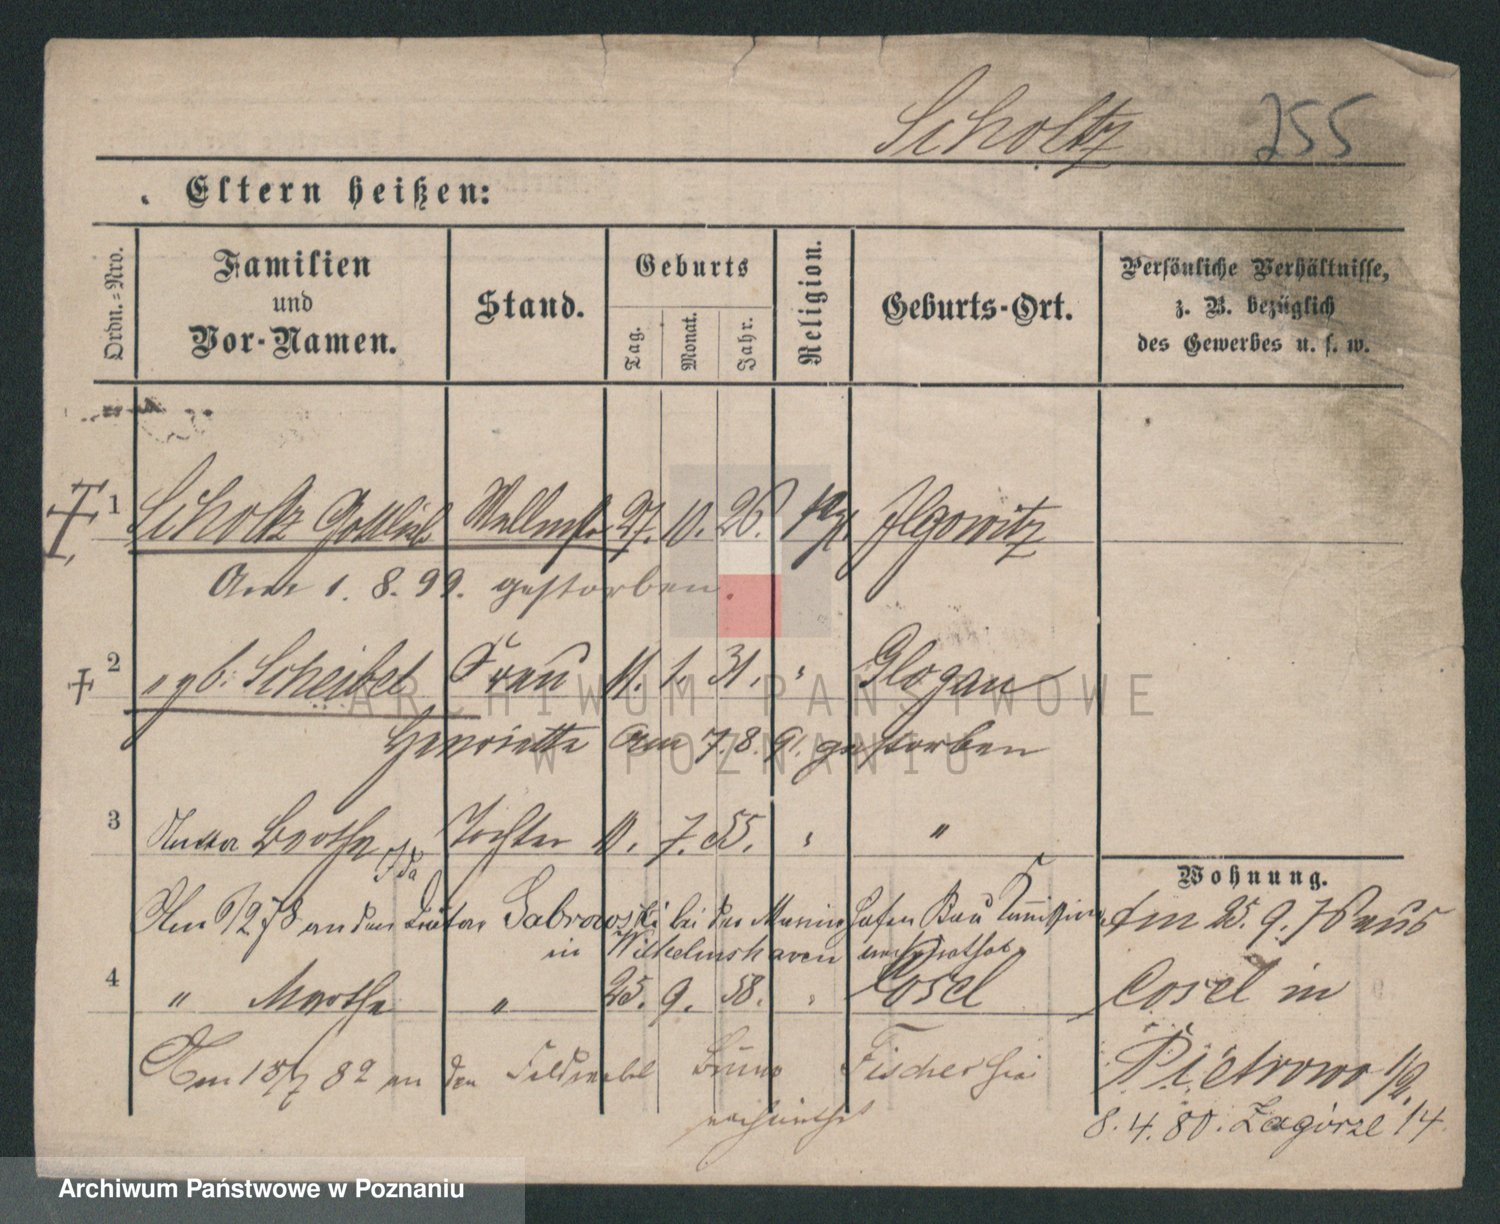 Scholtz 255
Eltern heißen:
Ordn.=Nro.
Familien
und
Vor-Namen.
Stand.
Geburts
Tag.
Monat.
Jahr.
Religion.
Geburts-Ort.
Persönliche Verhältnisse,
z. B. bezüglich
des Gewerbes u. s. w.
1 Scholtz Gottlieb 27. 10. 26. Ilgowitz
Am 1. 8. 99. gestorben.
2 " gb. Scheibel Frau 11. 1. 31. " Glogau
Henriette am 7. 8. 91. gestorben
3 Bertha Ida Tochter 11. 7. 55. " "
Wohnung.
Am an den Gabrowski bei der Marine Hafen Bau
in Wilhelmshaven verheirathet
Am 25. 9. 76 aus
4 " Martha " 25. 9. 58. " Cosel
Cosel in
Am 82 an den Feldwebel Bruno Fischer hier
verheirathet
Pietrowo 1/2.
8. 4. 80. Zagórze 14.
ARCHIWUM PAŃSTWOWE
W POZNANIU
Archiwum Państwowe w Poznaniu